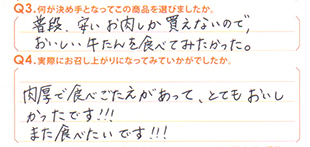 Q3.何が決め手となってこの商品を選びましたか。
普段、安いお肉しか買えないので、
おいしい牛たんを食べてみたかった。
Q4.実際にお召し上がりになってみていかがでしたか。
肉厚で食べごたえがあって、とてもおいし
かったです!!!
また食べたいです!!!